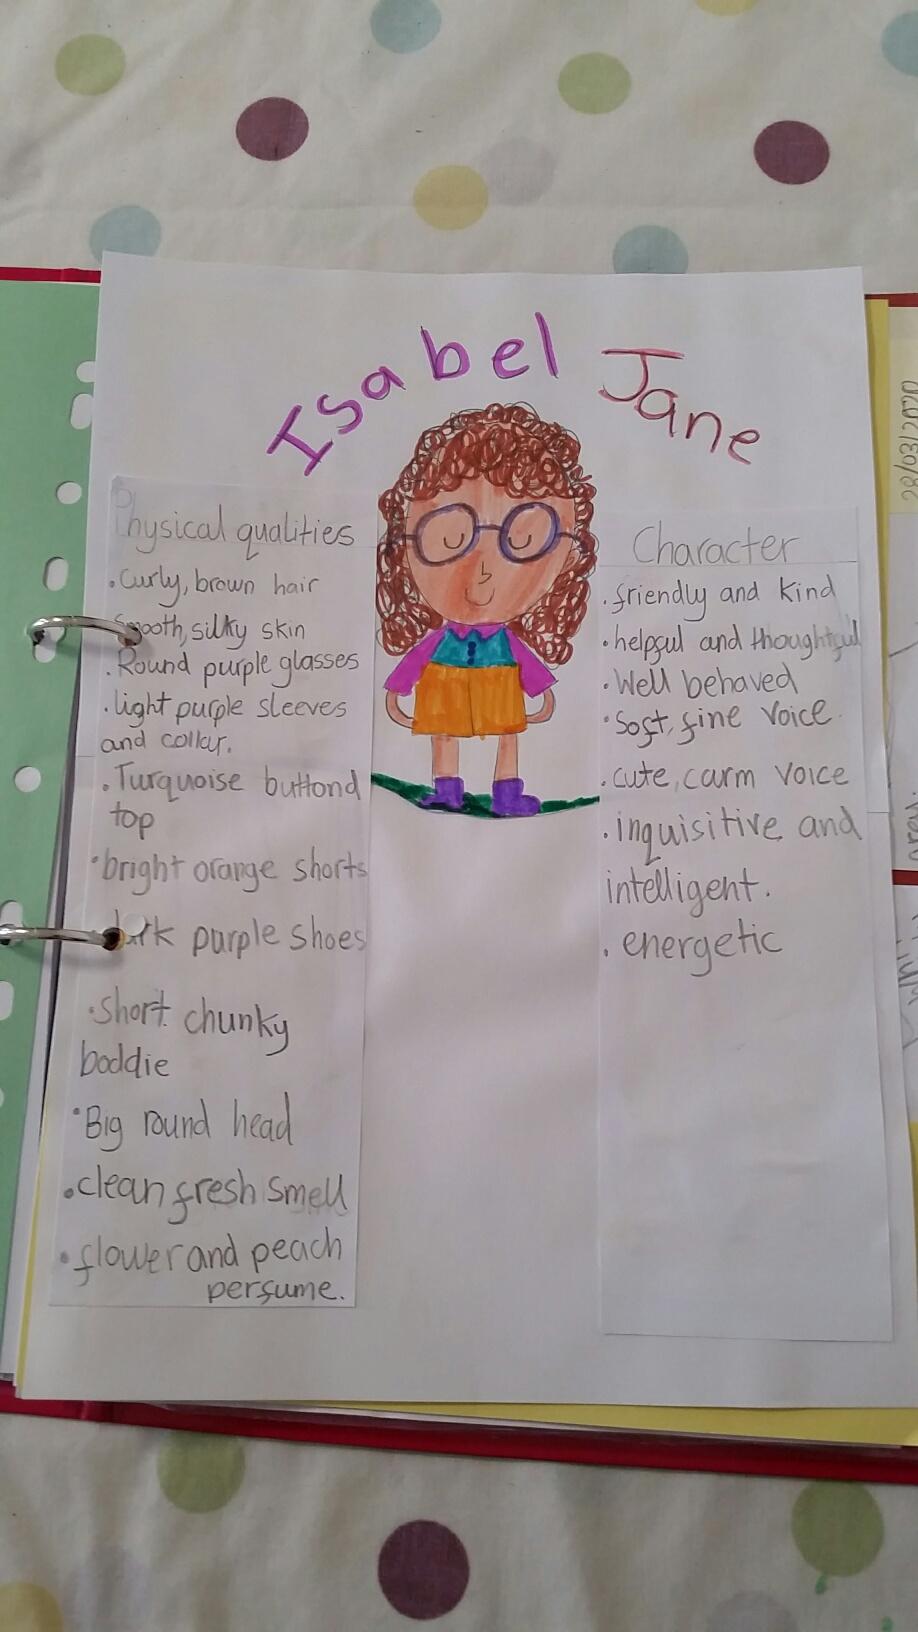 Isabel Jane
Physical qualities
. Curly, brown hair
Smooth, silky skin
. Round purple glasses
. light purple sleeves
and collar.
. Turquoise buttond
top
. bright orange shorts
dark purple shoes
. short chunky
boddie
. Big round head
. clean fresh smell
. flower and peach
perfume.
Character
. friendly and kind
. helpful and thoughtful
. Well behaved
. Soft, fine voice.
. cute, carm voice
. inquisitive and
intelligent.
. energetic